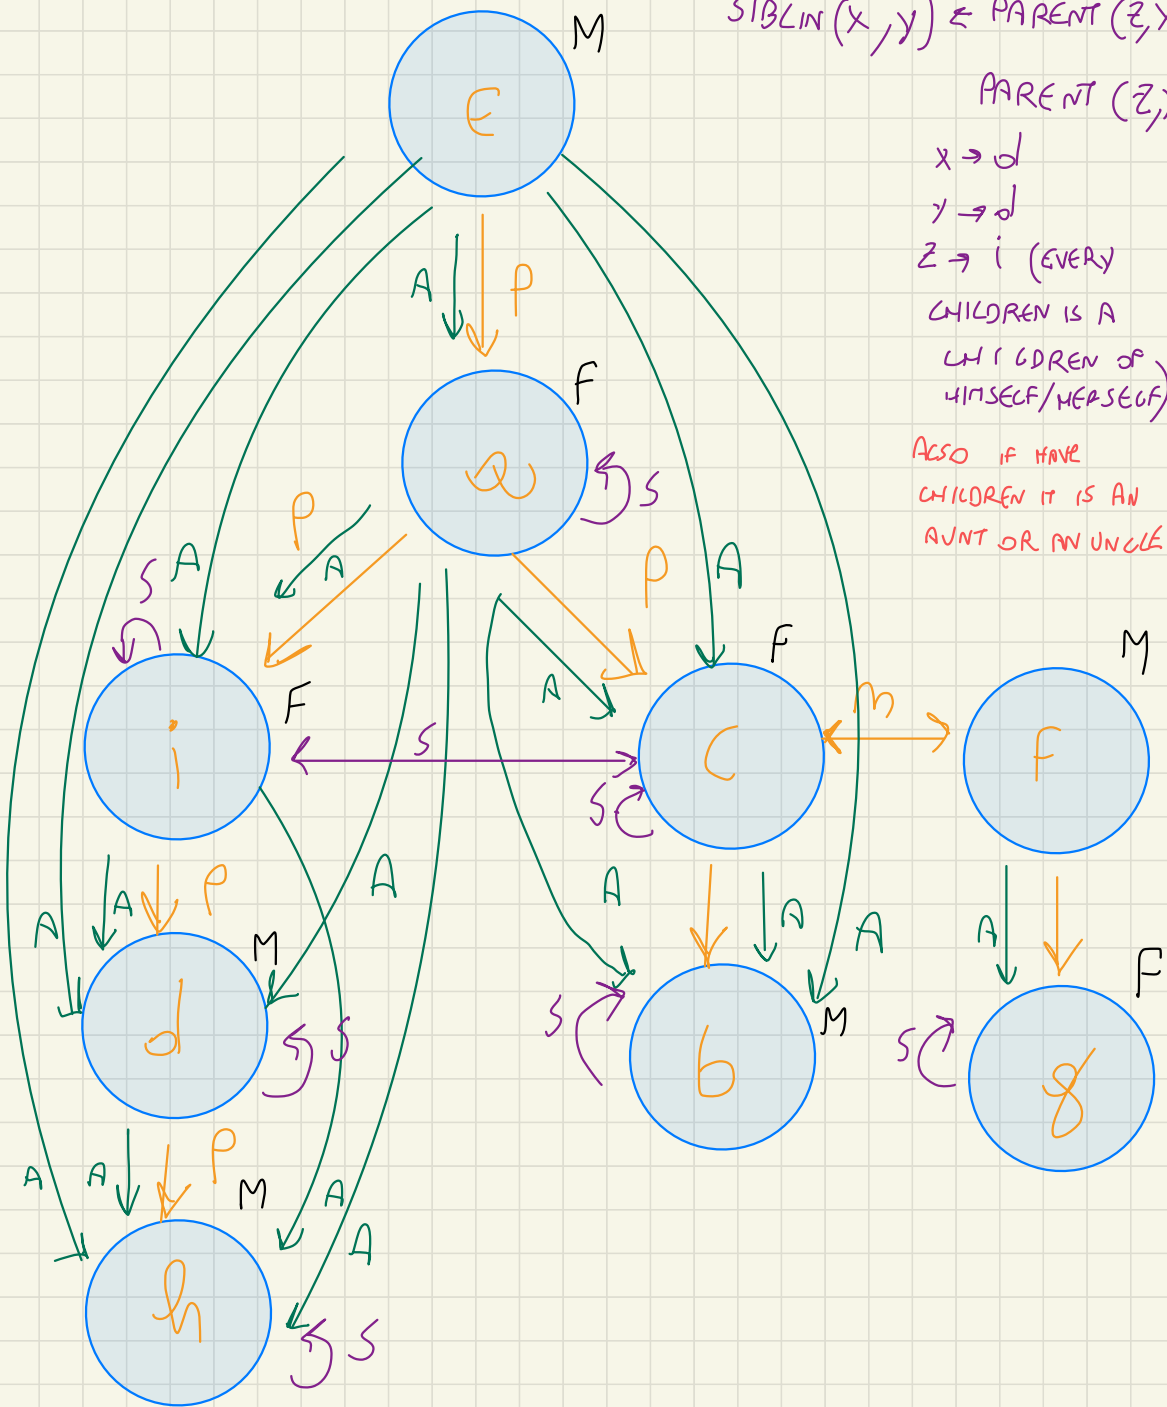 SIBLIN(X,Y) ← PARENT(Z,Y
PARENT(Z,
X → d
Y → d
Z → i (EVERY
CHILDREN IS A
CHILDREN OF
HIMSELF/HERSELF)
ALSO IF HAVE
CHILDREN IT IS AN
AUNT OR AN UNCLE
M
E
A P
F
a
S
P
A
P
A
S A
A
F
M
F
m
i
S
C
F
S
A P
A
A
A
A
A
A
M
F
d
S
S
b
M
S
g
P
A A
M
A
A
h
S